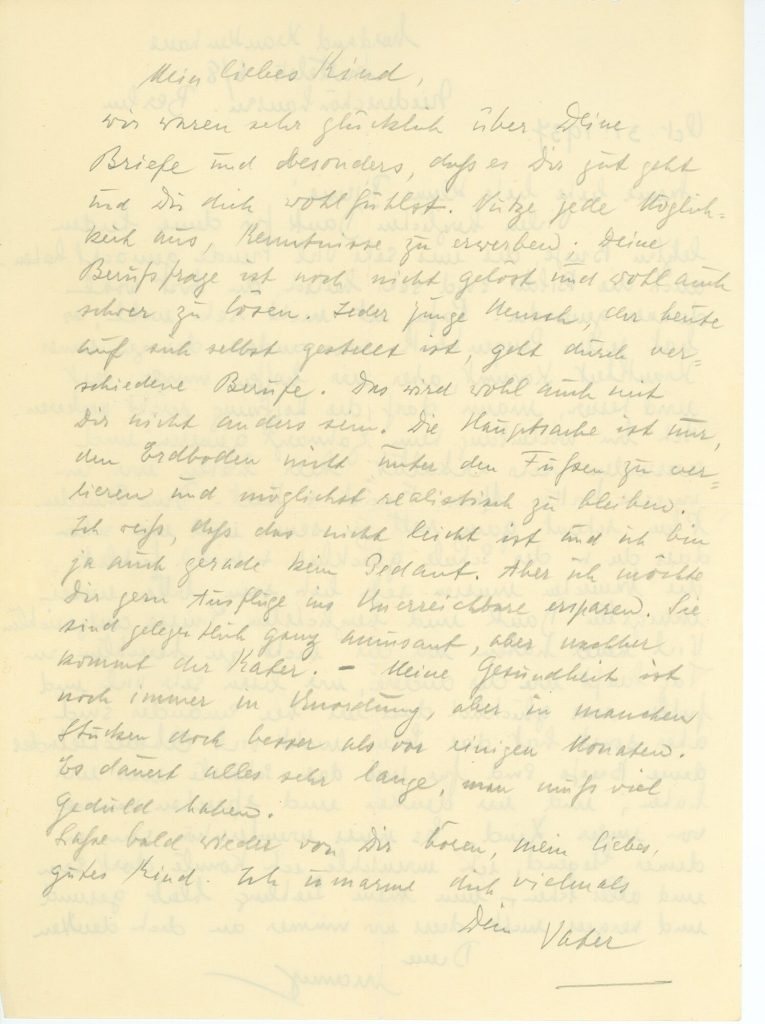 Mein liebes Kind,
wir waren sehr glücklich über Deine
Briefe und besonders, daß es Dir gut geht
und Du dich wohlfühlst. Nütze jede Möglich=
keit aus, Kenntnisse zu erwerben. Deine
Berufsfrage ist noch nicht gelöst und wohl auch
schwer zu lösen. Jeder junge Mensch, der heute
auf sich selbst gestellt ist, geht durch ver=
schiedene Berufe. Das wird wohl auch mit
Dir nicht anders sein. Die Hauptsache ist nur,
den Erdboden nicht unter den Füßen zu ver=
lieren und möglichst realistisch zu bleiben.
Ich weiß, daß das nicht leicht ist und ich bin
ja auch gerade kein Pedant. Aber ich möchte
Dir gern Ausflüge ins Unerreichbare ersparen. Sie
sind gelegentlich ganz amüsant, aber nachher
kommt der Kater. – Meine Gesundheit ist
noch immer in Unordnung, aber in manchen
Stücken doch besser als vor einigen Monaten.
Es dauert alles sehr lange, man muß viel
Geduld haben.
Lasse bald wieder von Dir hören, mein liebes,
gutes Kind. Ich umarme dich vielmals
Dein Vater